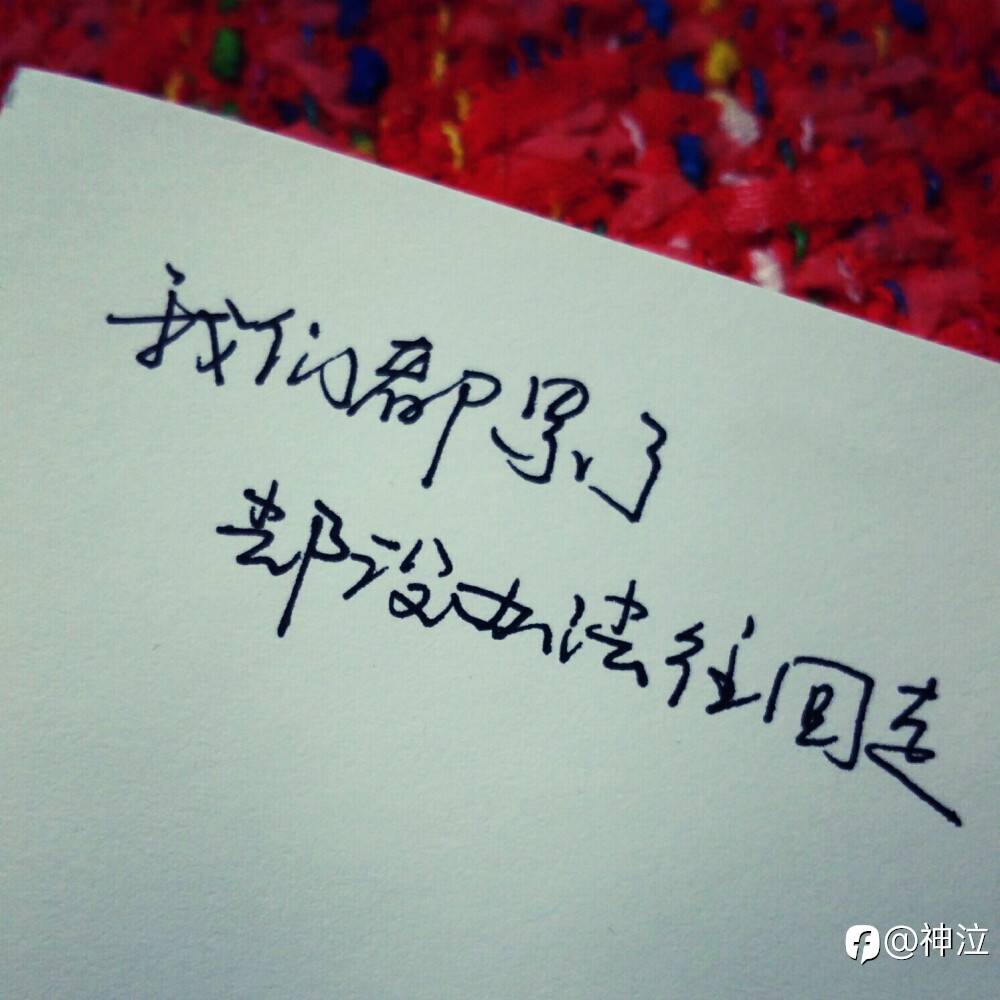 我们都累了
却没办法往回走
@神泣